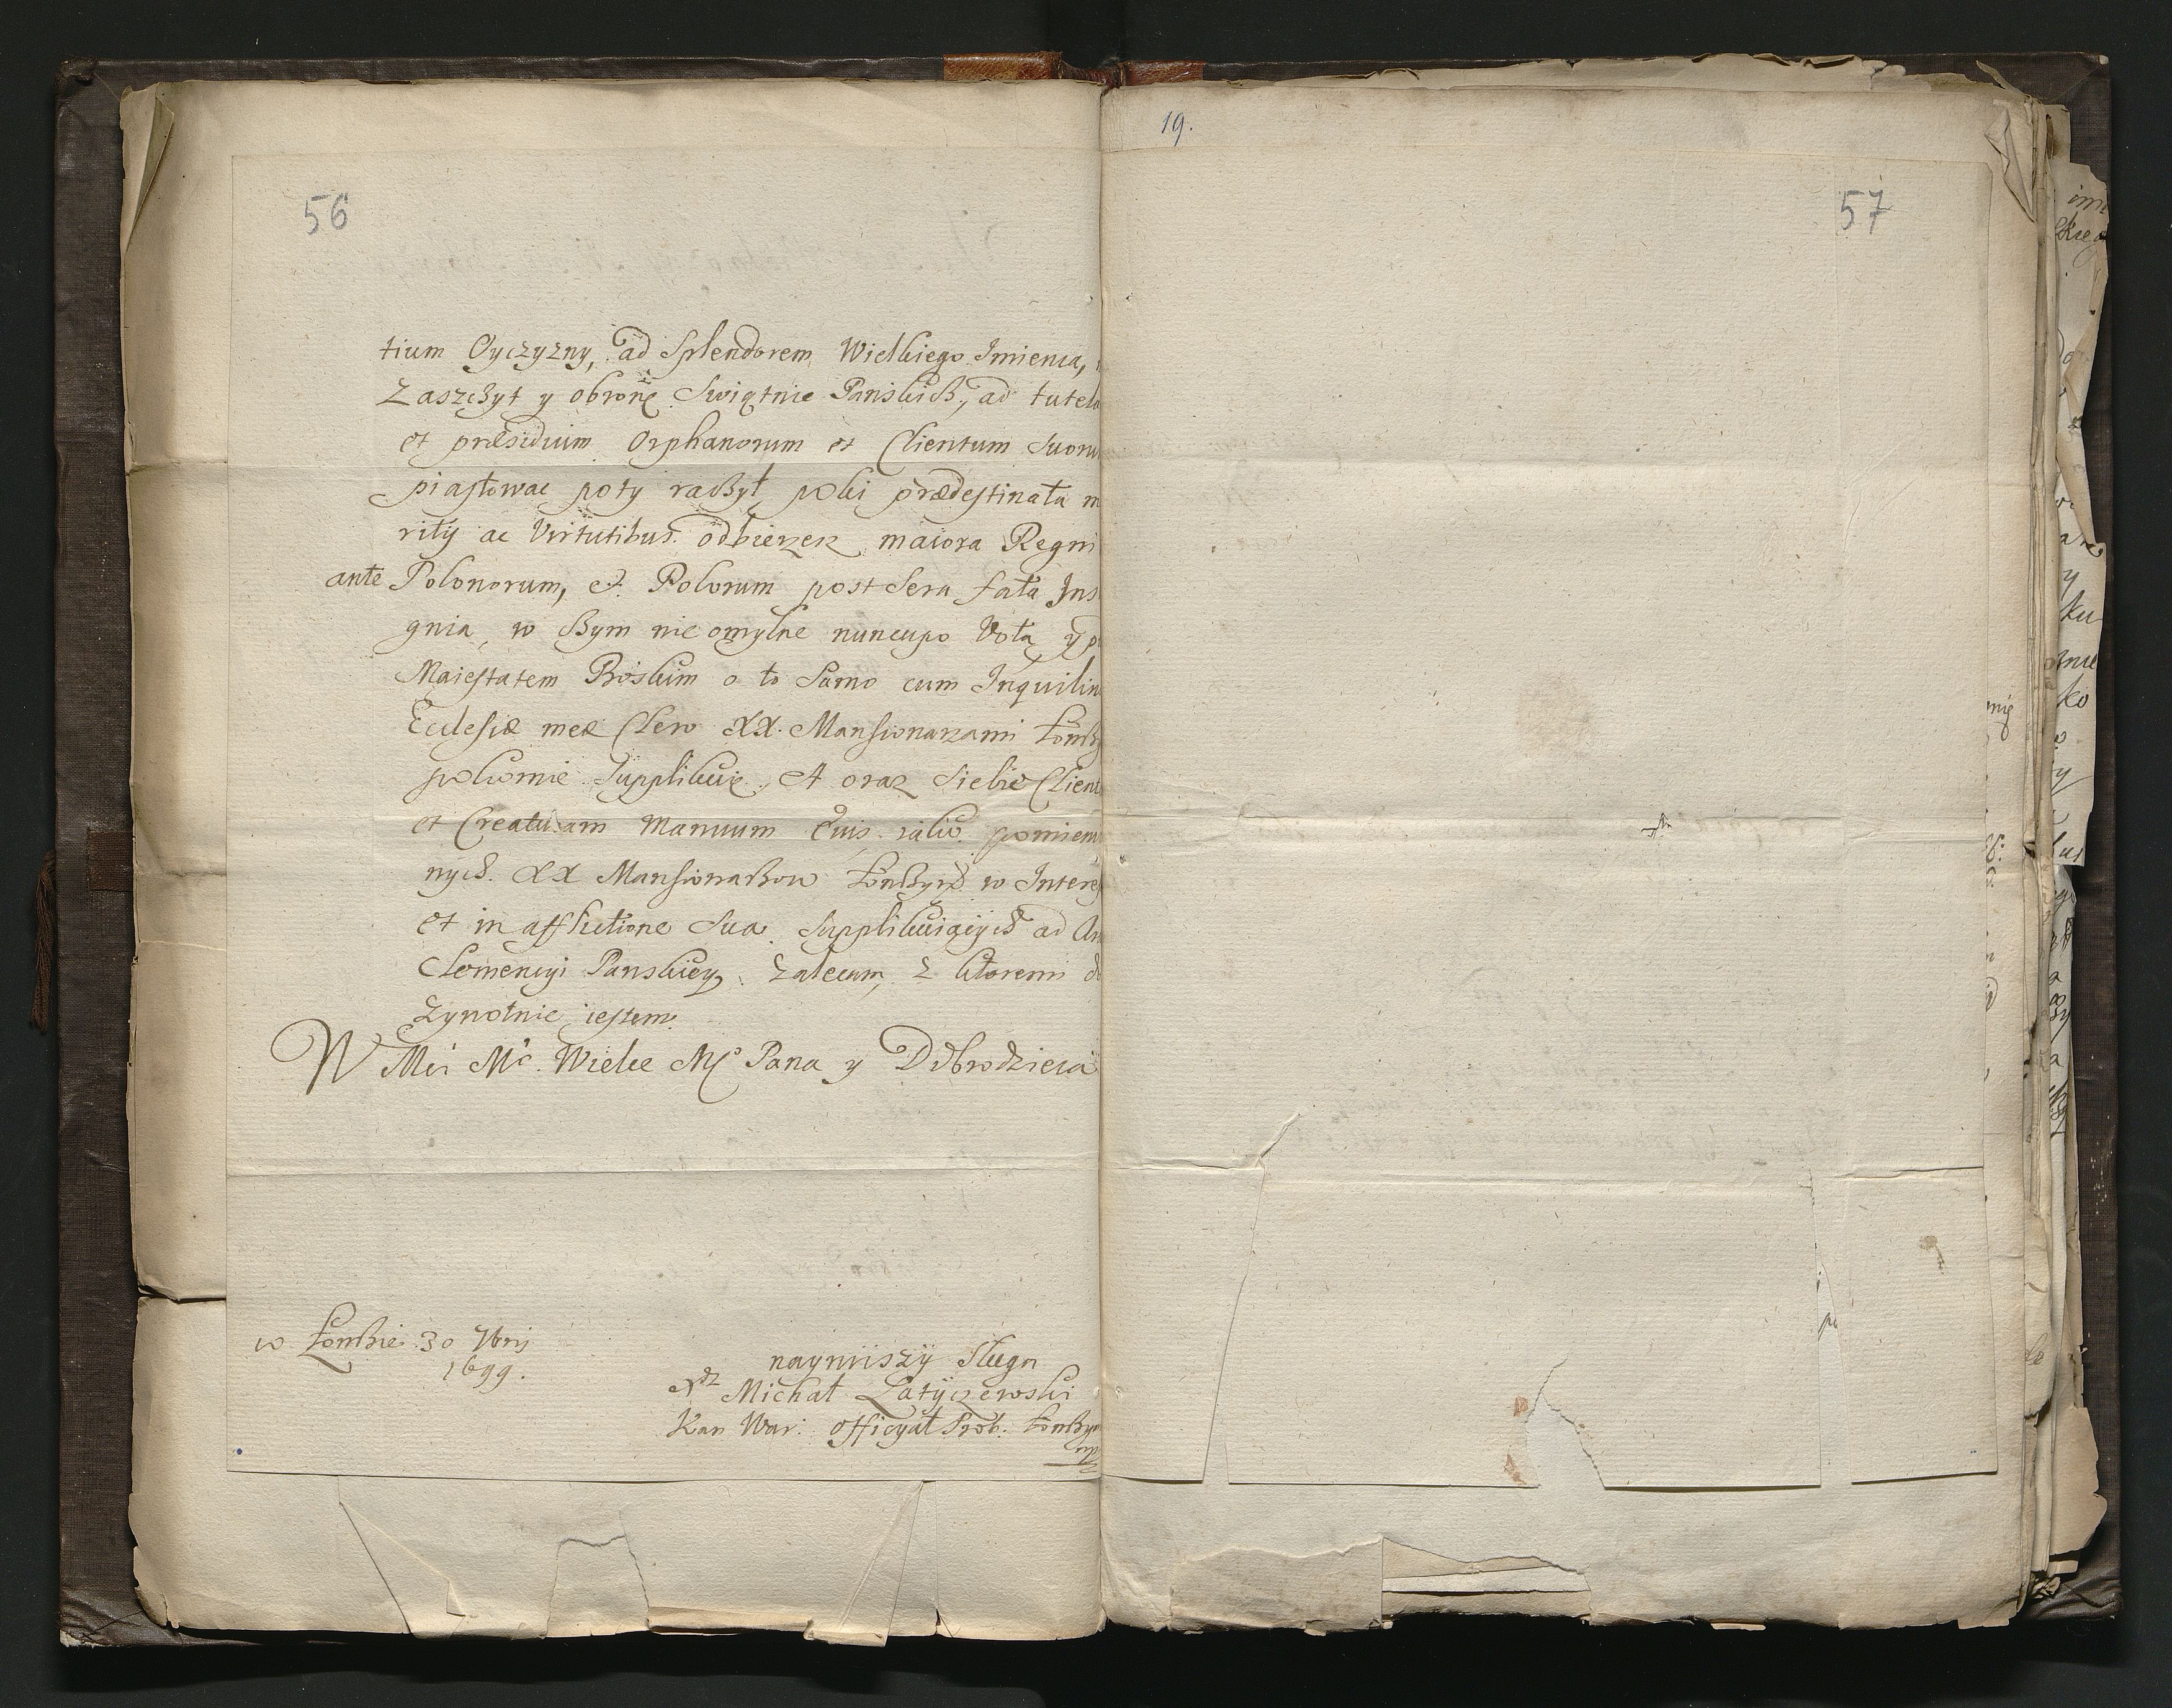 56
tium Oyczyzny, ad Splendorem Wielkiego Imienia,
Zaszczyt y obronę Swiątnic Panskich, ad tutela
et præsidium Orphanorum et Clientum Suoru
piastowac poty raczył, poki prædestinata m
ritis ac Virtutibus odbierzesz maiora Regni
ante Polonorum, et Polorum post Sera fata Ins
gnia, w czym nieomylne nuncupo Vota, y p
Maiestatem Boskum o to Samo cum Inquilin
Ecclesiæ meæ Clero XX. Mansionarzami Łomż
pokornie Supplikuię, A oraz Siebie Client
et Creaturam Manuum Eius iako pomieni
nych XX Mansionarzow Łomżyns w Interes
et in afflictione Sua Supplikuiących ad
Clemencyi Panskiey zalecam, z ktoremi do
zywotnie iestem.
W Mci Mc. Wielce Mo Pana y Dobrodzieia
w Łomże 30 7bris
1699.
nayniszy Sługa
Xdz Michał Latyczewski
Kan War: Officyał Prob. Łomżyn
mp
19.
57